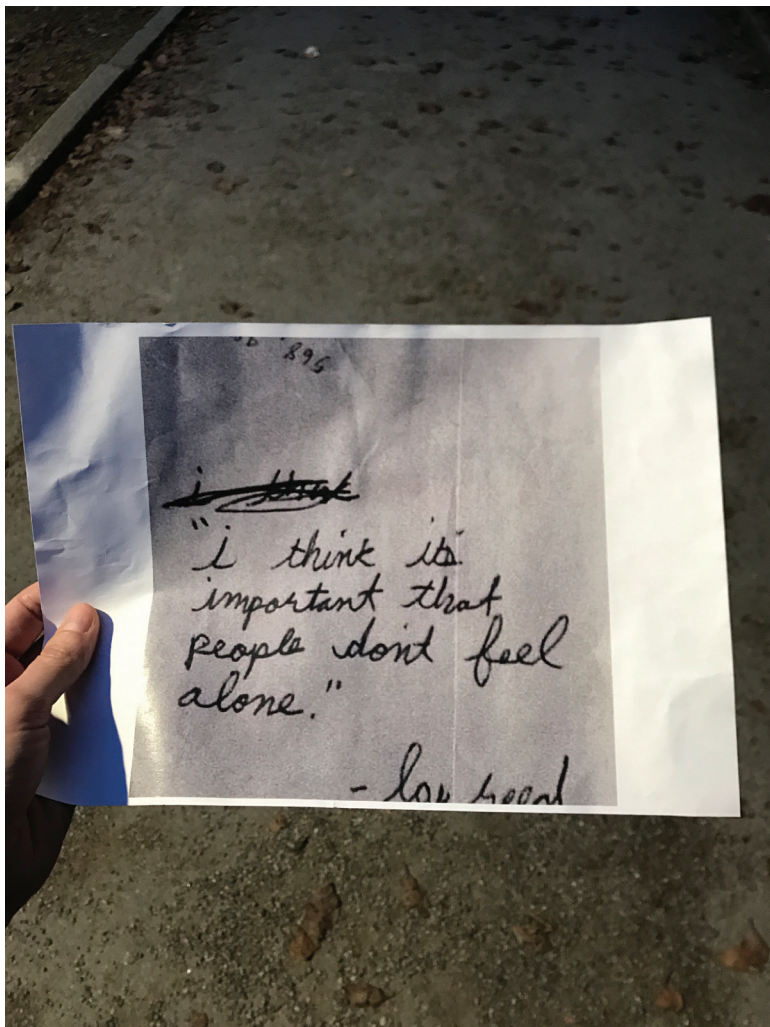 895
i think
"i think it's
important that
people don't feel
alone."
- lou reed